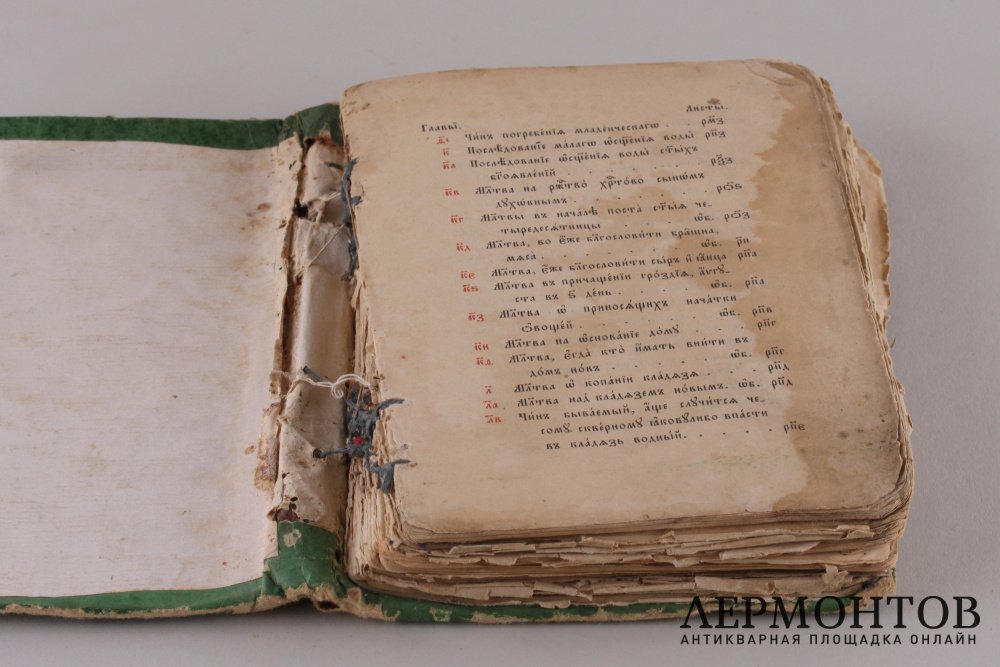 Листы҇.
Главы̑.
д҃і Чи́нъ погребе́нїѧ младе́нческагѡ . рм҃з
к҃ Послѣ́дованїе ма́лагѡ ѡ҆сщ҃е́нїѧ воды̀ рн҃з
к҃а Послѣ́дованїе ѡ҆сщ҃е́нїѧ воды̀ ст҃ы́хъ
бг҃оѧвле́нїй . . . . . . . . . р҃з
к҃в Мл҃тва на рж҇тво̀ хр҇то́во сынѡ́мъ
дꙋхѡ́внымъ . . . . . . . . . . ро҃ѕ
к҃г Мл҃твы въ нача́лѣ поста̀ ст҃ы́ѧ че-
тыредесѧ́тницы . . . . ѡб. ро҃з
к҃д Мл҃тва, во є҆́же бл҃гослови́ти бра̑шна,
мѧса̀ . . . . . . . . . ѡб. рп҃
к҃е Мл҃тва, є҆́же бл҃гослови́ти сы́ръ и҆ ꙗ҆́ица рп҃а
к҃ѕ Мл҃тва въ причаще́нїи гро́здїѧ, а҆́ѵгꙋ-
ста въ ѕ҃ де́нь . . . . . ѡб. рп҃а
к҃з Мл҃тва ѡ҆ приносѧ́щихъ нача́тки
ѻ҆во́щей . . . . . . . . ѡб. рп҃в
к҃и Мл҃тва на ѡ҆снова́нїе до́мꙋ . . . . рп҃г
к҃ѳ Мл҃тва, є҆гда̀ кто̀ и҆́мать вни́ти въ
до́мъ но́въ . . . . . . . ѡб. рп҃г
л҃ Мл҃тва ѡ҆ копа́нїи кла́дѧзѧ . . . рп҃д
л҃а Мл҃тва над̾ кла́дѧземъ но́вымъ. ѡб. рп҃д
л҃в Чи́нъ быва́емый, а҆́ще слꙋчи́тсѧ че-
сомꙋ̀ скве́рномꙋ ꙗ҆ковꙋ́либо впа́сти
въ кла́дѧзь во́дный . . . . . . рп҃е
ЛЕРМОНТОВ
АНТИКВАРНАЯ ПЛОЩАДКА ОНЛАЙН